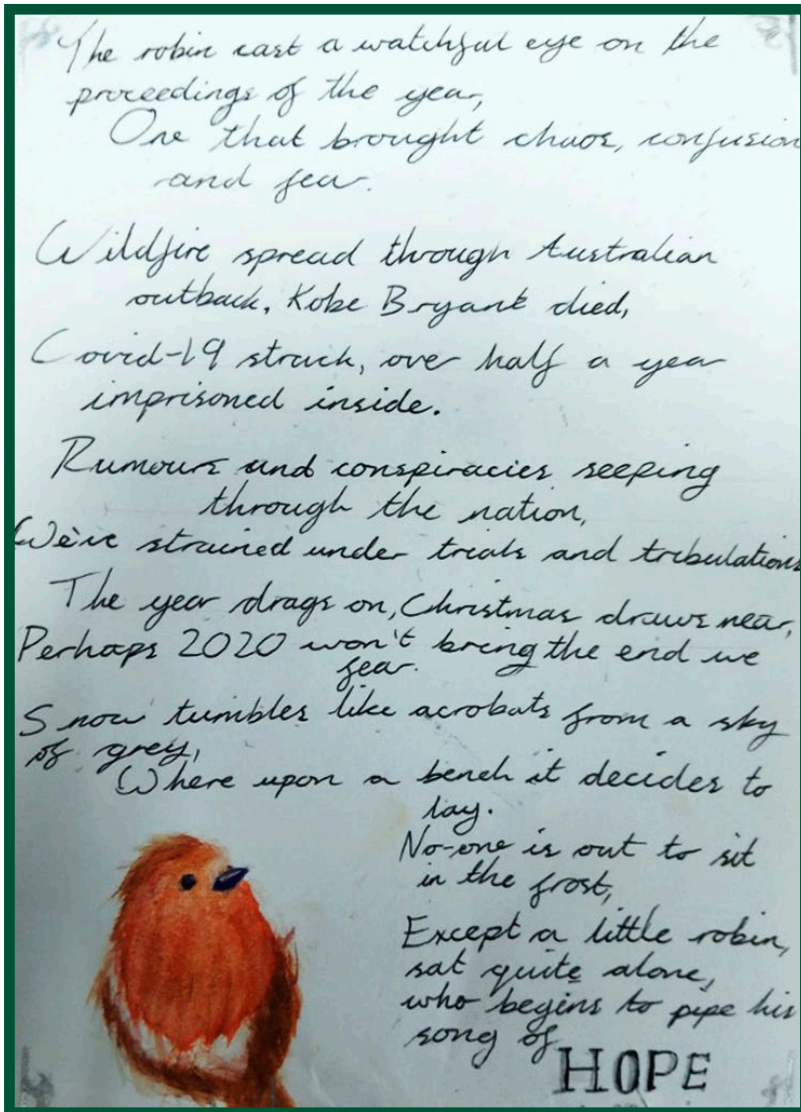 The robin cast a watchful eye on the
proceedings of the year,
One that brought chaos, confusion
and fear.
Wildfire spread through Australian
outback, Kobe Bryant died,
Covid-19 struck, over half a year
imprisoned inside.
Rumours and conspiracies seeping
through the nation,
We've strained under trials and tribulations
The year drags on, Christmas draws near,
Perhaps 2020 won't bring the end we
fear.
Snow tumbles like acrobats from a sky
of grey,
Where upon a bench it decides to
lay.
No-one is out to sit
in the frost,
Except a little robin,
sat quite alone,
who begins to pipe his
song of
HOPE